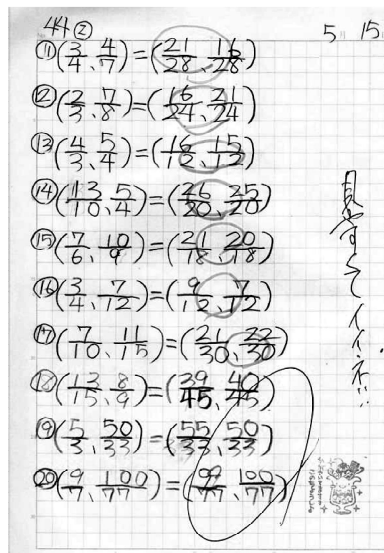 44② 5 15
⑪(3/4、4/7)=(21/28、16/28)
⑫(2/3、7/8)=(16/24、21/24)
⑬(4/3、5/4)=(16/12、15/12)
⑭(13/10、5/4)=(26/20、25/20)
⑮(7/6、10/9)=(21/18、20/18)
⑯(3/4、7/12)=(9/12、7/12)
⑰(7/10、11/15)=(21/30、22/30)
⑱(13/15、8/9)=(39/45、40/45)
⑲(5/3、50/33)=(55/33、50/33)
⑳(9/7、100/77)=(99/77、100/77)
見やすくてイイネ!!